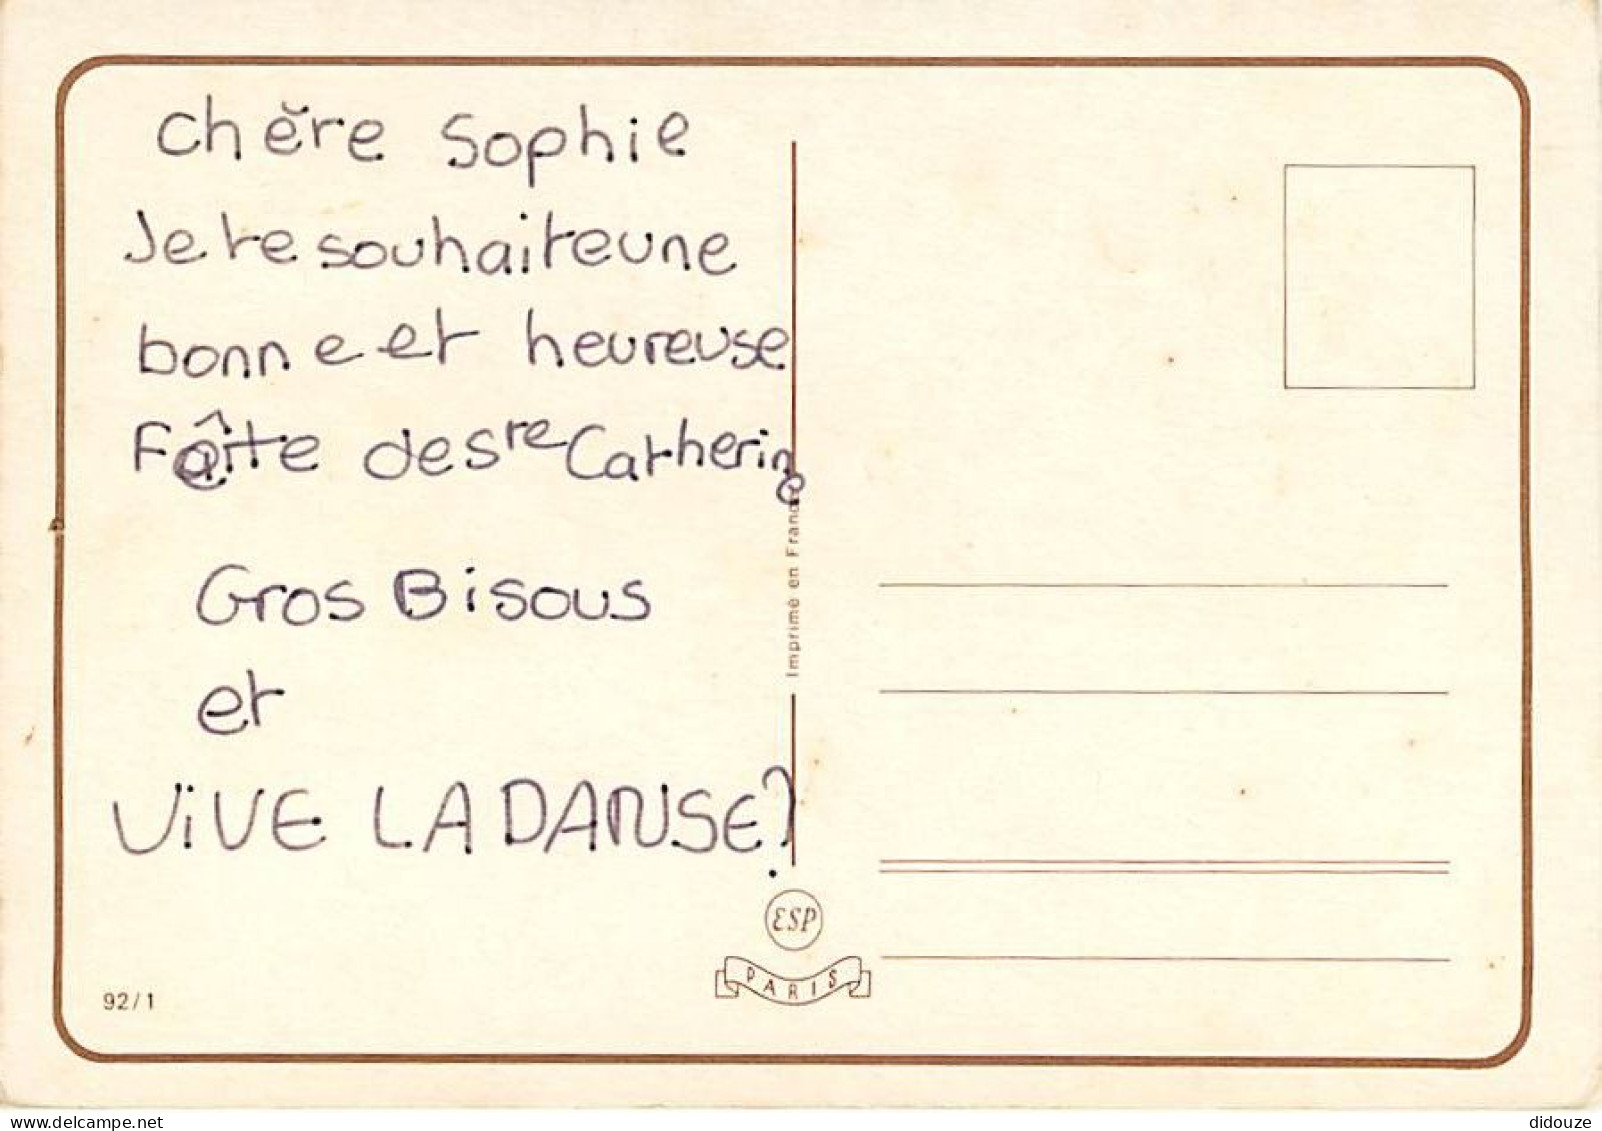 Chère Sophie
Je te souhaite une
bonne et heureuse
Fête de Ste Catherine
Gros Bisous
et
ViVE LA DANSE?
Imprimé en France
ESP
PARIS
92/1
https://www.delcampe.net
didouze